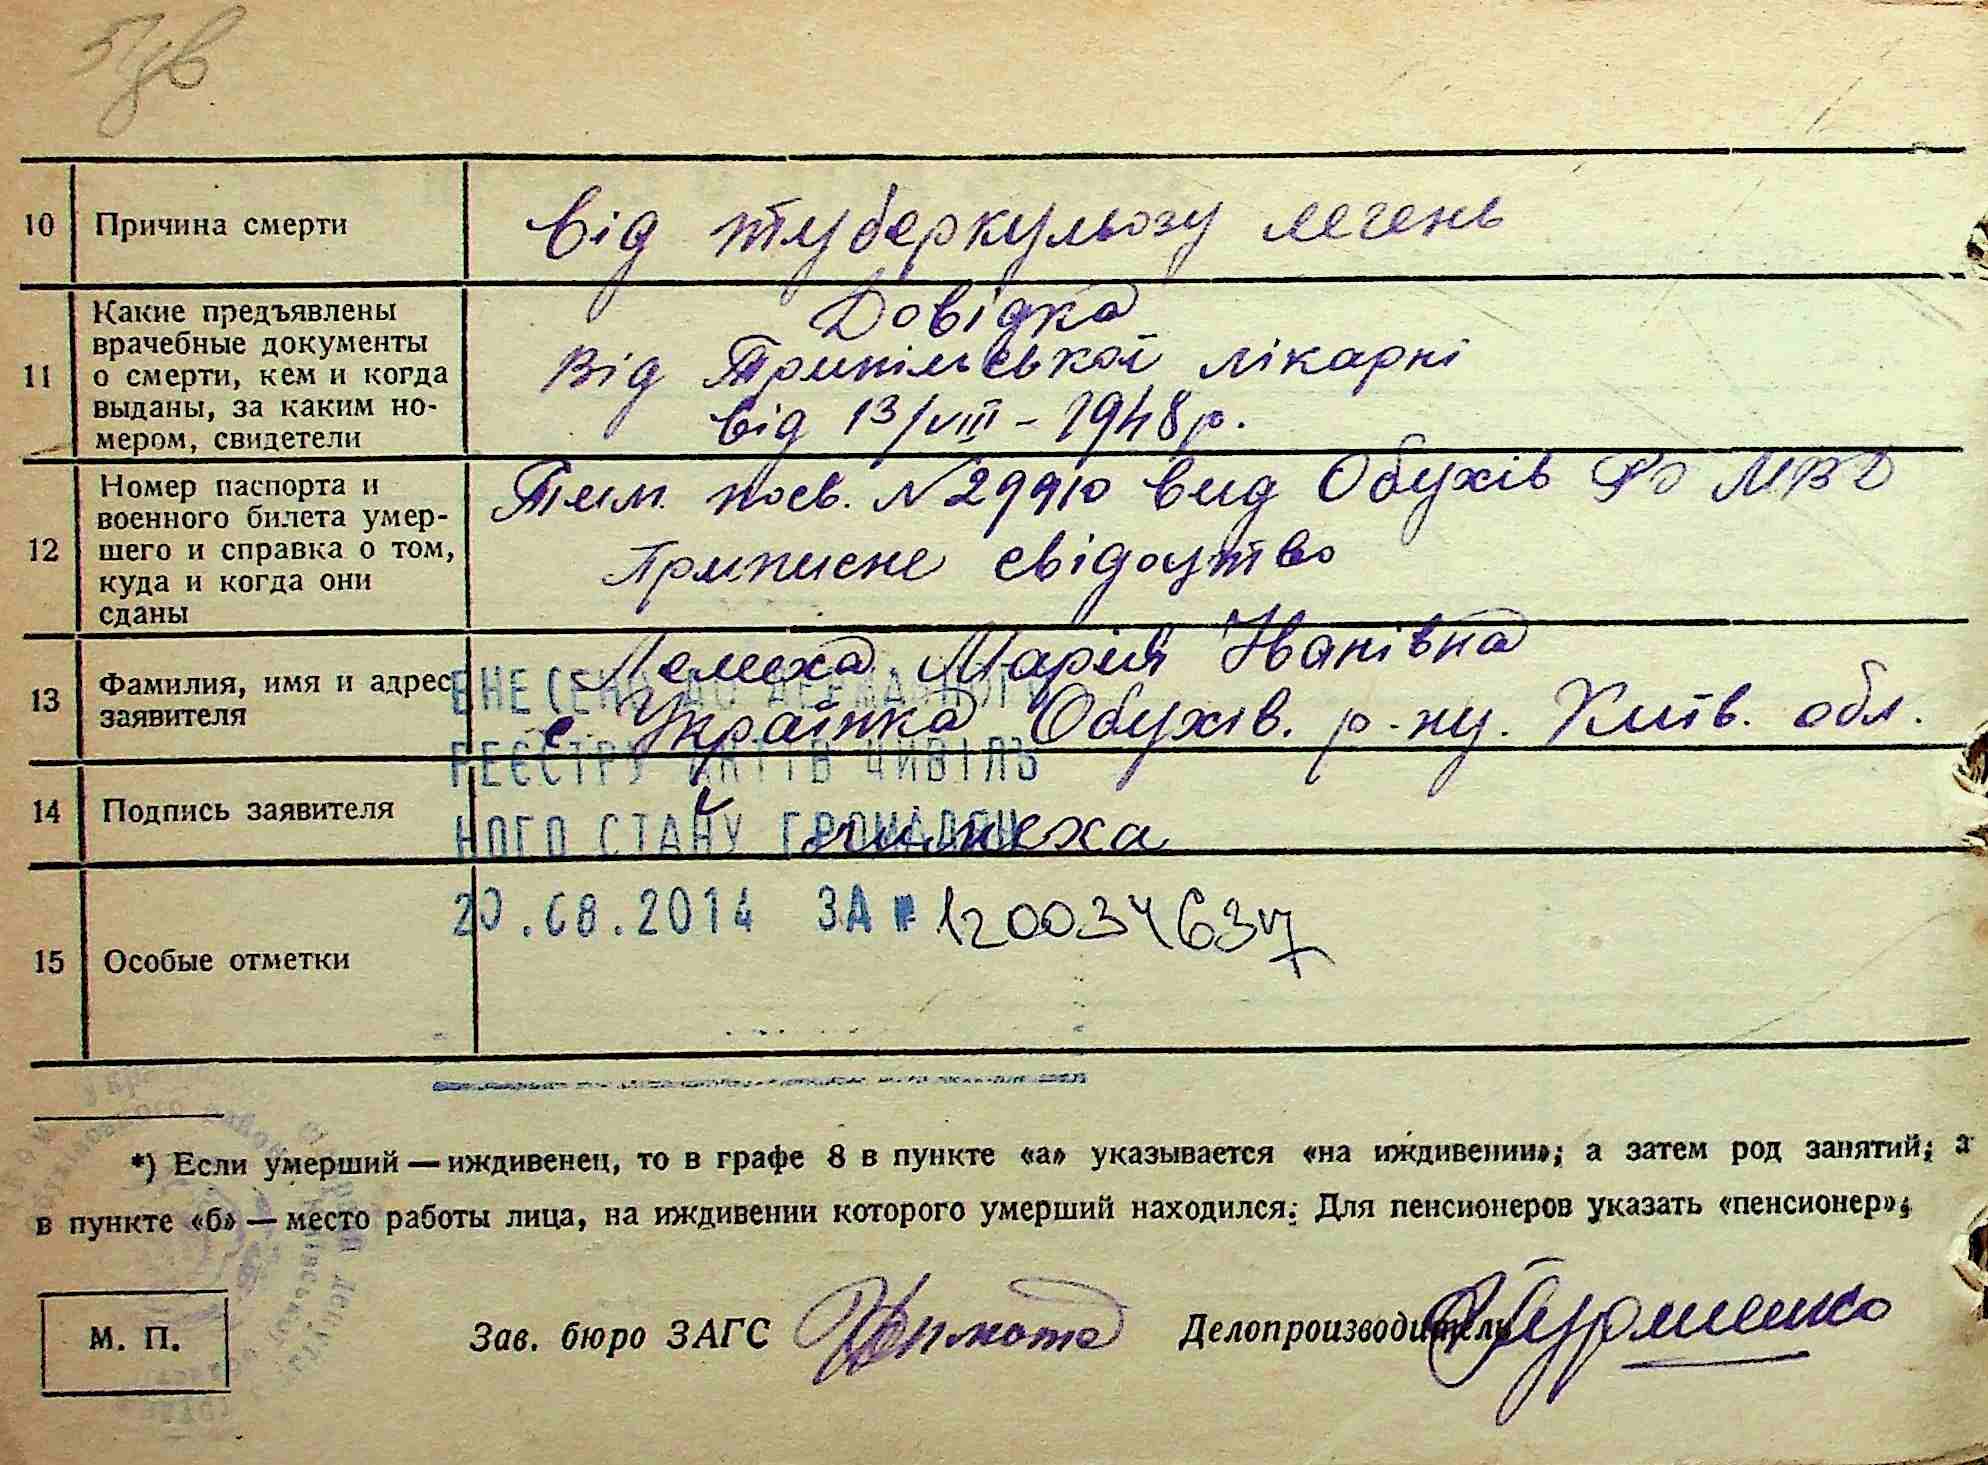 10 Причина смерти від туберкульозу легень
11 Какие предъявлены
врачебные документы
о смерти, кем и когда
выданы, за каким но-
мером, свидетели
Довідка
від Трипільської лікарні
від 13/VIII - 1948 р.
12 Номер паспорта и
военного билета умер-
шего и справка о том,
куда и когда они
сданы
Тим. посв. № 29910 вид Обухів РО МВД
Приписне свідоцтво
13 Фамилия, имя и адрес
заявителя
Лемеха Марія Іванівна
с. Українка Обухів. р-ну. Київ. обл.
14 Подпись заявителя
ВНЕСЕНО ДО ДЕРЖАВНОГО
РЕЄСТРУ АКТІВ ЦИВІЛЬ
НОГО СТАНУ ГРОМАДЯН
20.08.2014 ЗА №
15 Особые отметки
*) Если умерший — иждивенец, то в графе 8 в пункте «а» указывается «на иждивении»; а затем род занятий; а
в пункте «б» — место работы лица, на иждивении которого умерший находился. Для пенсионеров указать «пенсионер»;
М. П.
Зав. бюро ЗАГС
Делопроизводитель